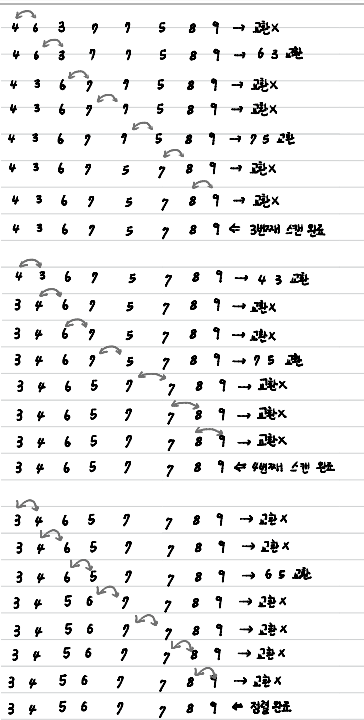 4 6 3 7 7 5 8 9 → 교환X
4 6 3 7 7 5 8 9 → 6 3 교환
4 3 6 7 7 5 8 9 → 교환X
4 3 6 7 7 5 8 9 → 교환X
4 3 6 7 7 5 8 9 → 7 5 교환
4 3 6 7 5 7 8 9 → 교환X
4 3 6 7 5 7 8 9 → 교환X
4 3 6 7 5 7 8 9 ⇐ 3번째 스캔 완료
4 3 6 7 5 7 8 9 → 4 3 교환
3 4 6 7 5 7 8 9 → 교환X
3 4 6 7 5 7 8 9 → 교환X
3 4 6 7 5 7 8 9 → 7 5 교환
3 4 6 5 7 7 8 9 → 교환X
3 4 6 5 7 7 8 9 → 교환X
3 4 6 5 7 7 8 9 → 교환X
3 4 6 5 7 7 8 9 ⇐ 4번째 스캔 완료
3 4 6 5 7 7 8 9 → 교환X
3 4 6 5 7 7 8 9 → 교환X
3 4 6 5 7 7 8 9 → 6 5 교환
3 4 5 6 7 7 8 9 → 교환X
3 4 5 6 7 7 8 9 → 교환X
3 4 5 6 7 7 8 9 → 교환X
3 4 5 6 7 7 8 9 → 교환X
3 4 5 6 7 7 8 9 ⇐ 정렬 완료